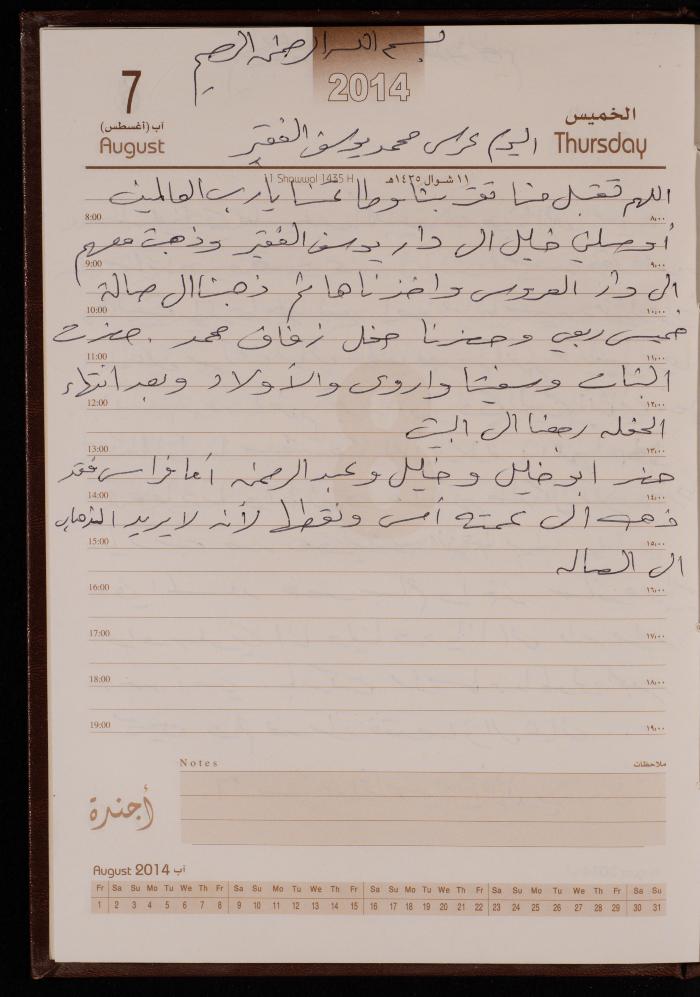 بسم الله الرحمن الرحيم
7
2014
الخميس
آب (أغسطس)
August
Thursday
اليوم عرس محمد يوسف الفقير
11 Shawwal 1435 H
١١ شوال ١٤٣٥هـ
اللهم تقبل منا يا رب العالمين
8:00 ٨،٠٠
أوصلني خليل الى دار يوسف الفقير وذهبت معهم
9:00 ٩،٠٠
الى دار العروس واخذناها ثم ذهبنا ال صالة
10:00 ١٠،٠٠
خميس ربعي وحضرنا حفل زفاف محمد . حضرت
11:00 ١١،٠٠
البنات وسفيتا واروى والأولاد وبعد انتهاء
12:00 ١٢،٠٠
الحفله رجعنا ال البيت
13:00 ١٣،٠٠
حضر ابو خليل و خليل و عبد الرحمن أما فراس فقد
14:00 ١٤،٠٠
ذهب ال عمته أمس لأنه لا يريد الذهاب
15:00 ١٥،٠٠
ال الصاله
16:00 ١٦،٠٠
17:00 ١٧،٠٠
18:00 ١٨،٠٠
19:00 ١٩،٠٠
Notes ملاحظات
أجندة
August 2014 آب
Fr Sa Su Mo Tu We Th Fr Sa Su Mo Tu We Th Fr Sa Su Mo Tu We Th Fr Sa Su Mo Tu We Th Fr Sa Su
1 2 3 4 5 6 7 8 9 10 11 12 13 14 15 16 17 18 19 20 21 22 23 24 25 26 27 28 29 30 31